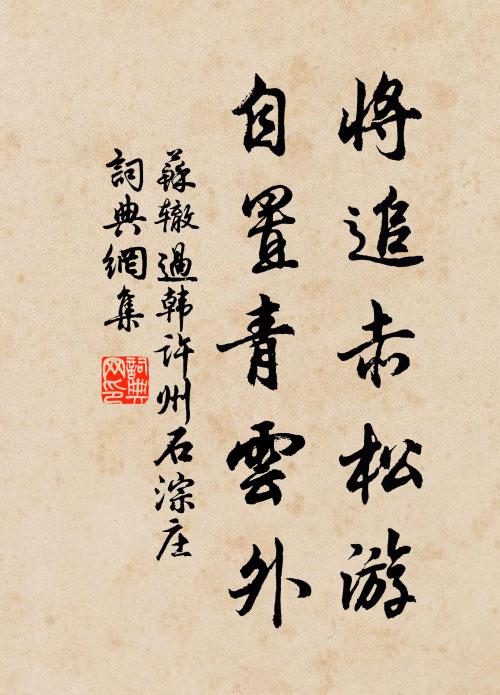 将追赤松游
自置青雲外
蘇辙過韩许州石淙庄
詞典網集
詞典
网印